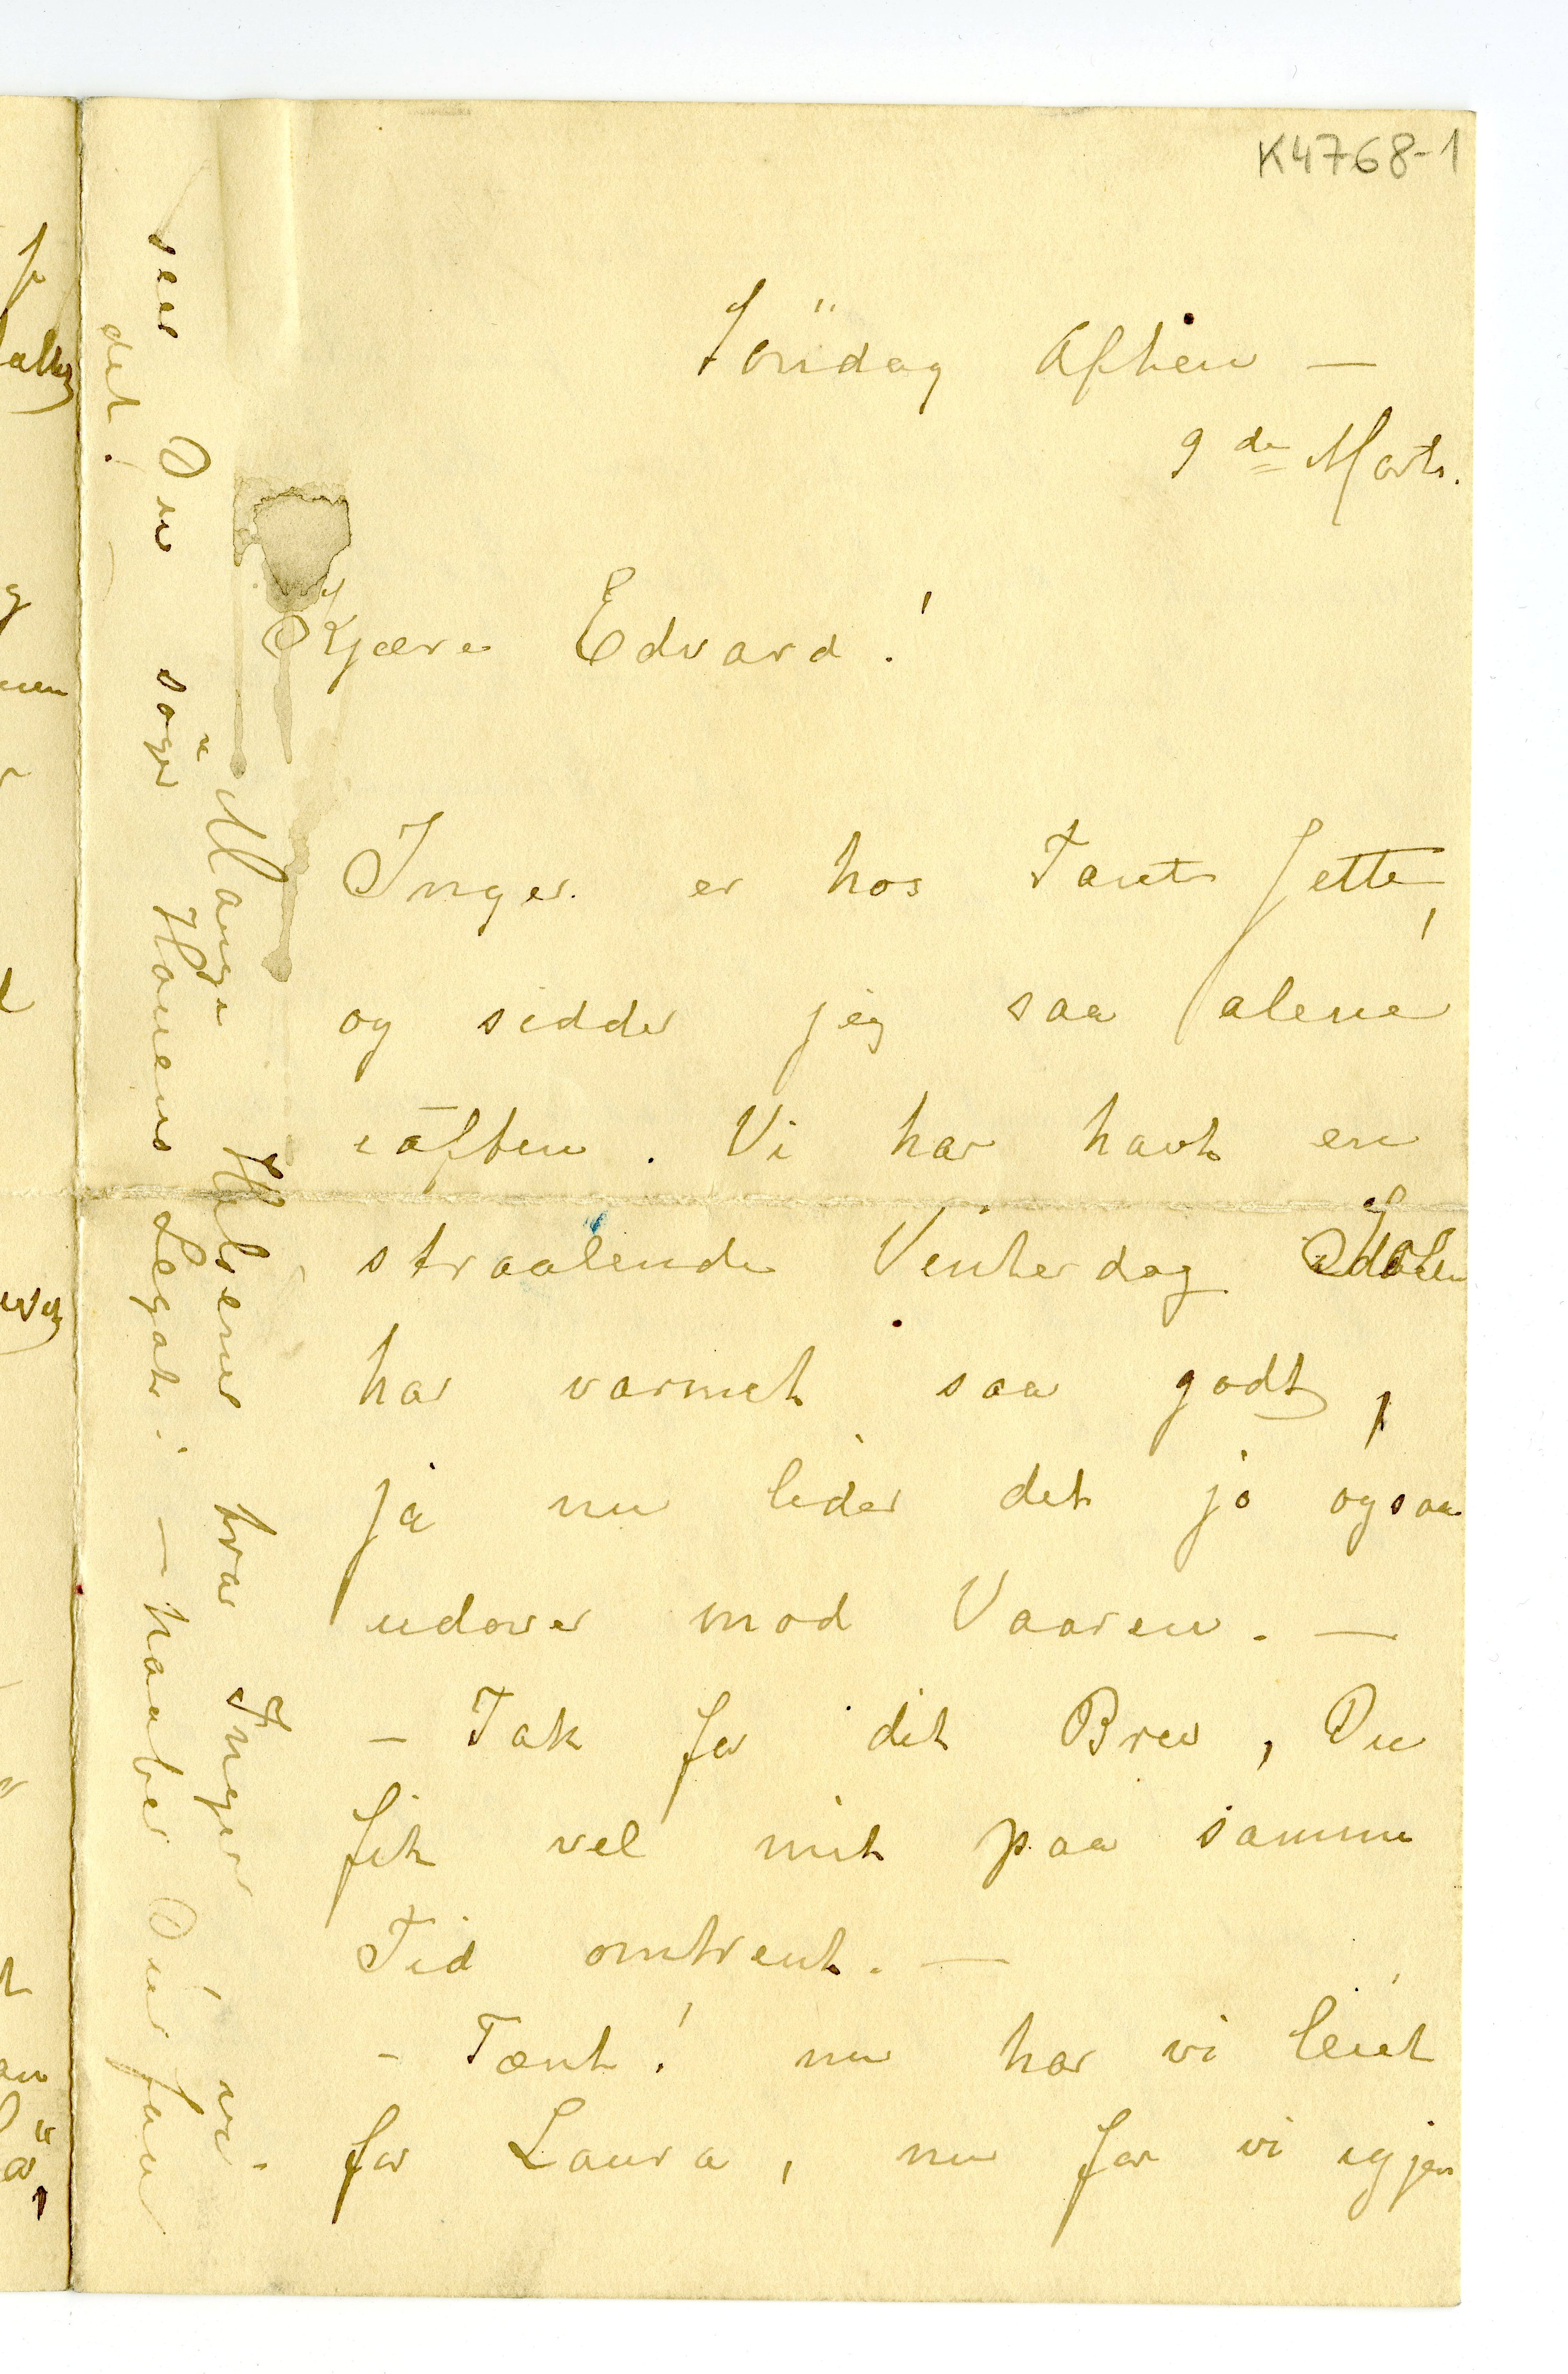 K4768-1
Söndag Aften —
9de Marts.
Kjære Edvard!
Inger er hos Tante Jette,
og sidder jeg saa alene
iaften. Vi har havt en
straalende Vinterdag Solen
har varmet saa godt,
ja nu lider det jo ogsaa
udover mod Vaaren. —
- Tak for dit Brev, Du
fik vel mit paa samme
Tid omtrent. —
- Tænk! nu har vi leiet
for Laura, nu for vi igjen
Mange Hilsener fra Inger
Du söger Hounens Legat: — haaber Du faar
det!